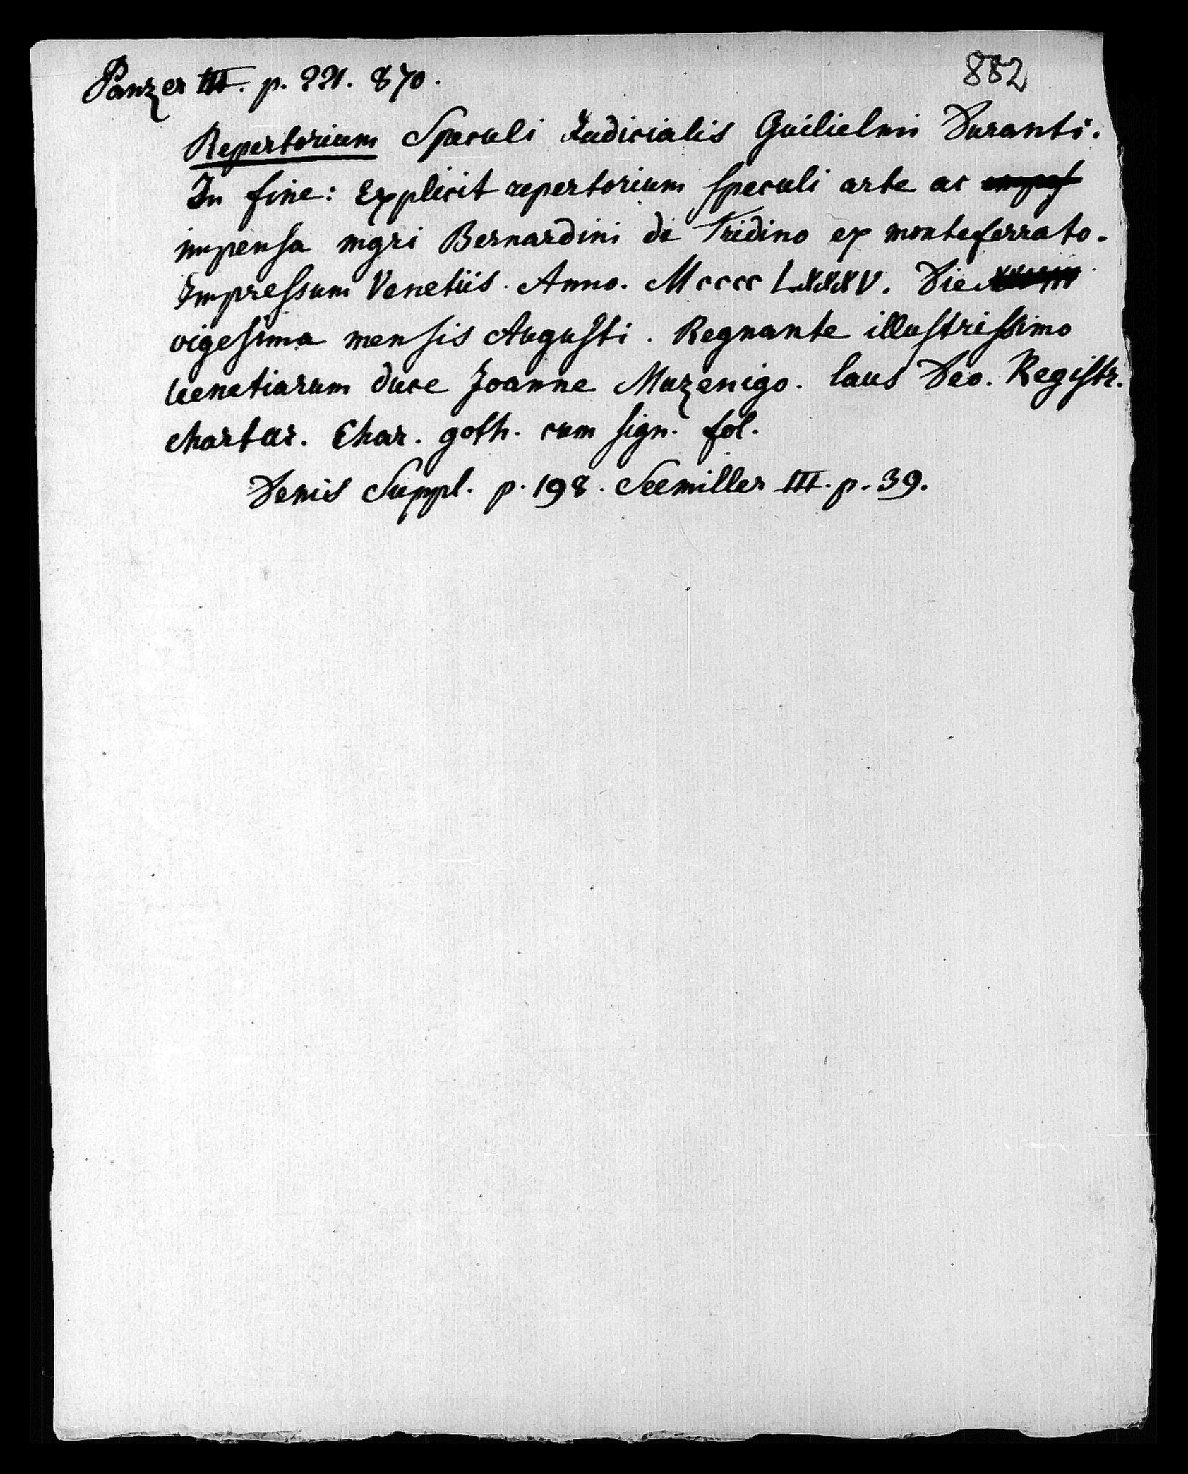 Panzer III. p. 221. 870.
882
Repertorium Speculi Judicialis Guilielmi Duranti.
In fine: Explicit repertorium speculi arte ac
impensa mgri Bernardini de Tridino ex monteferrato.
Impressum Venetiis. Anno. Mcccc LXXXV. Die
vigesima mensis Augusti. Regnante illustrissimo
Uenetiarum duce Joanne Mozenigo. laus Deo. Registr.
chartar. Char. goth. cum sign. fol.
Denis Suppl. p. 198. Seemiller III. p. 39.